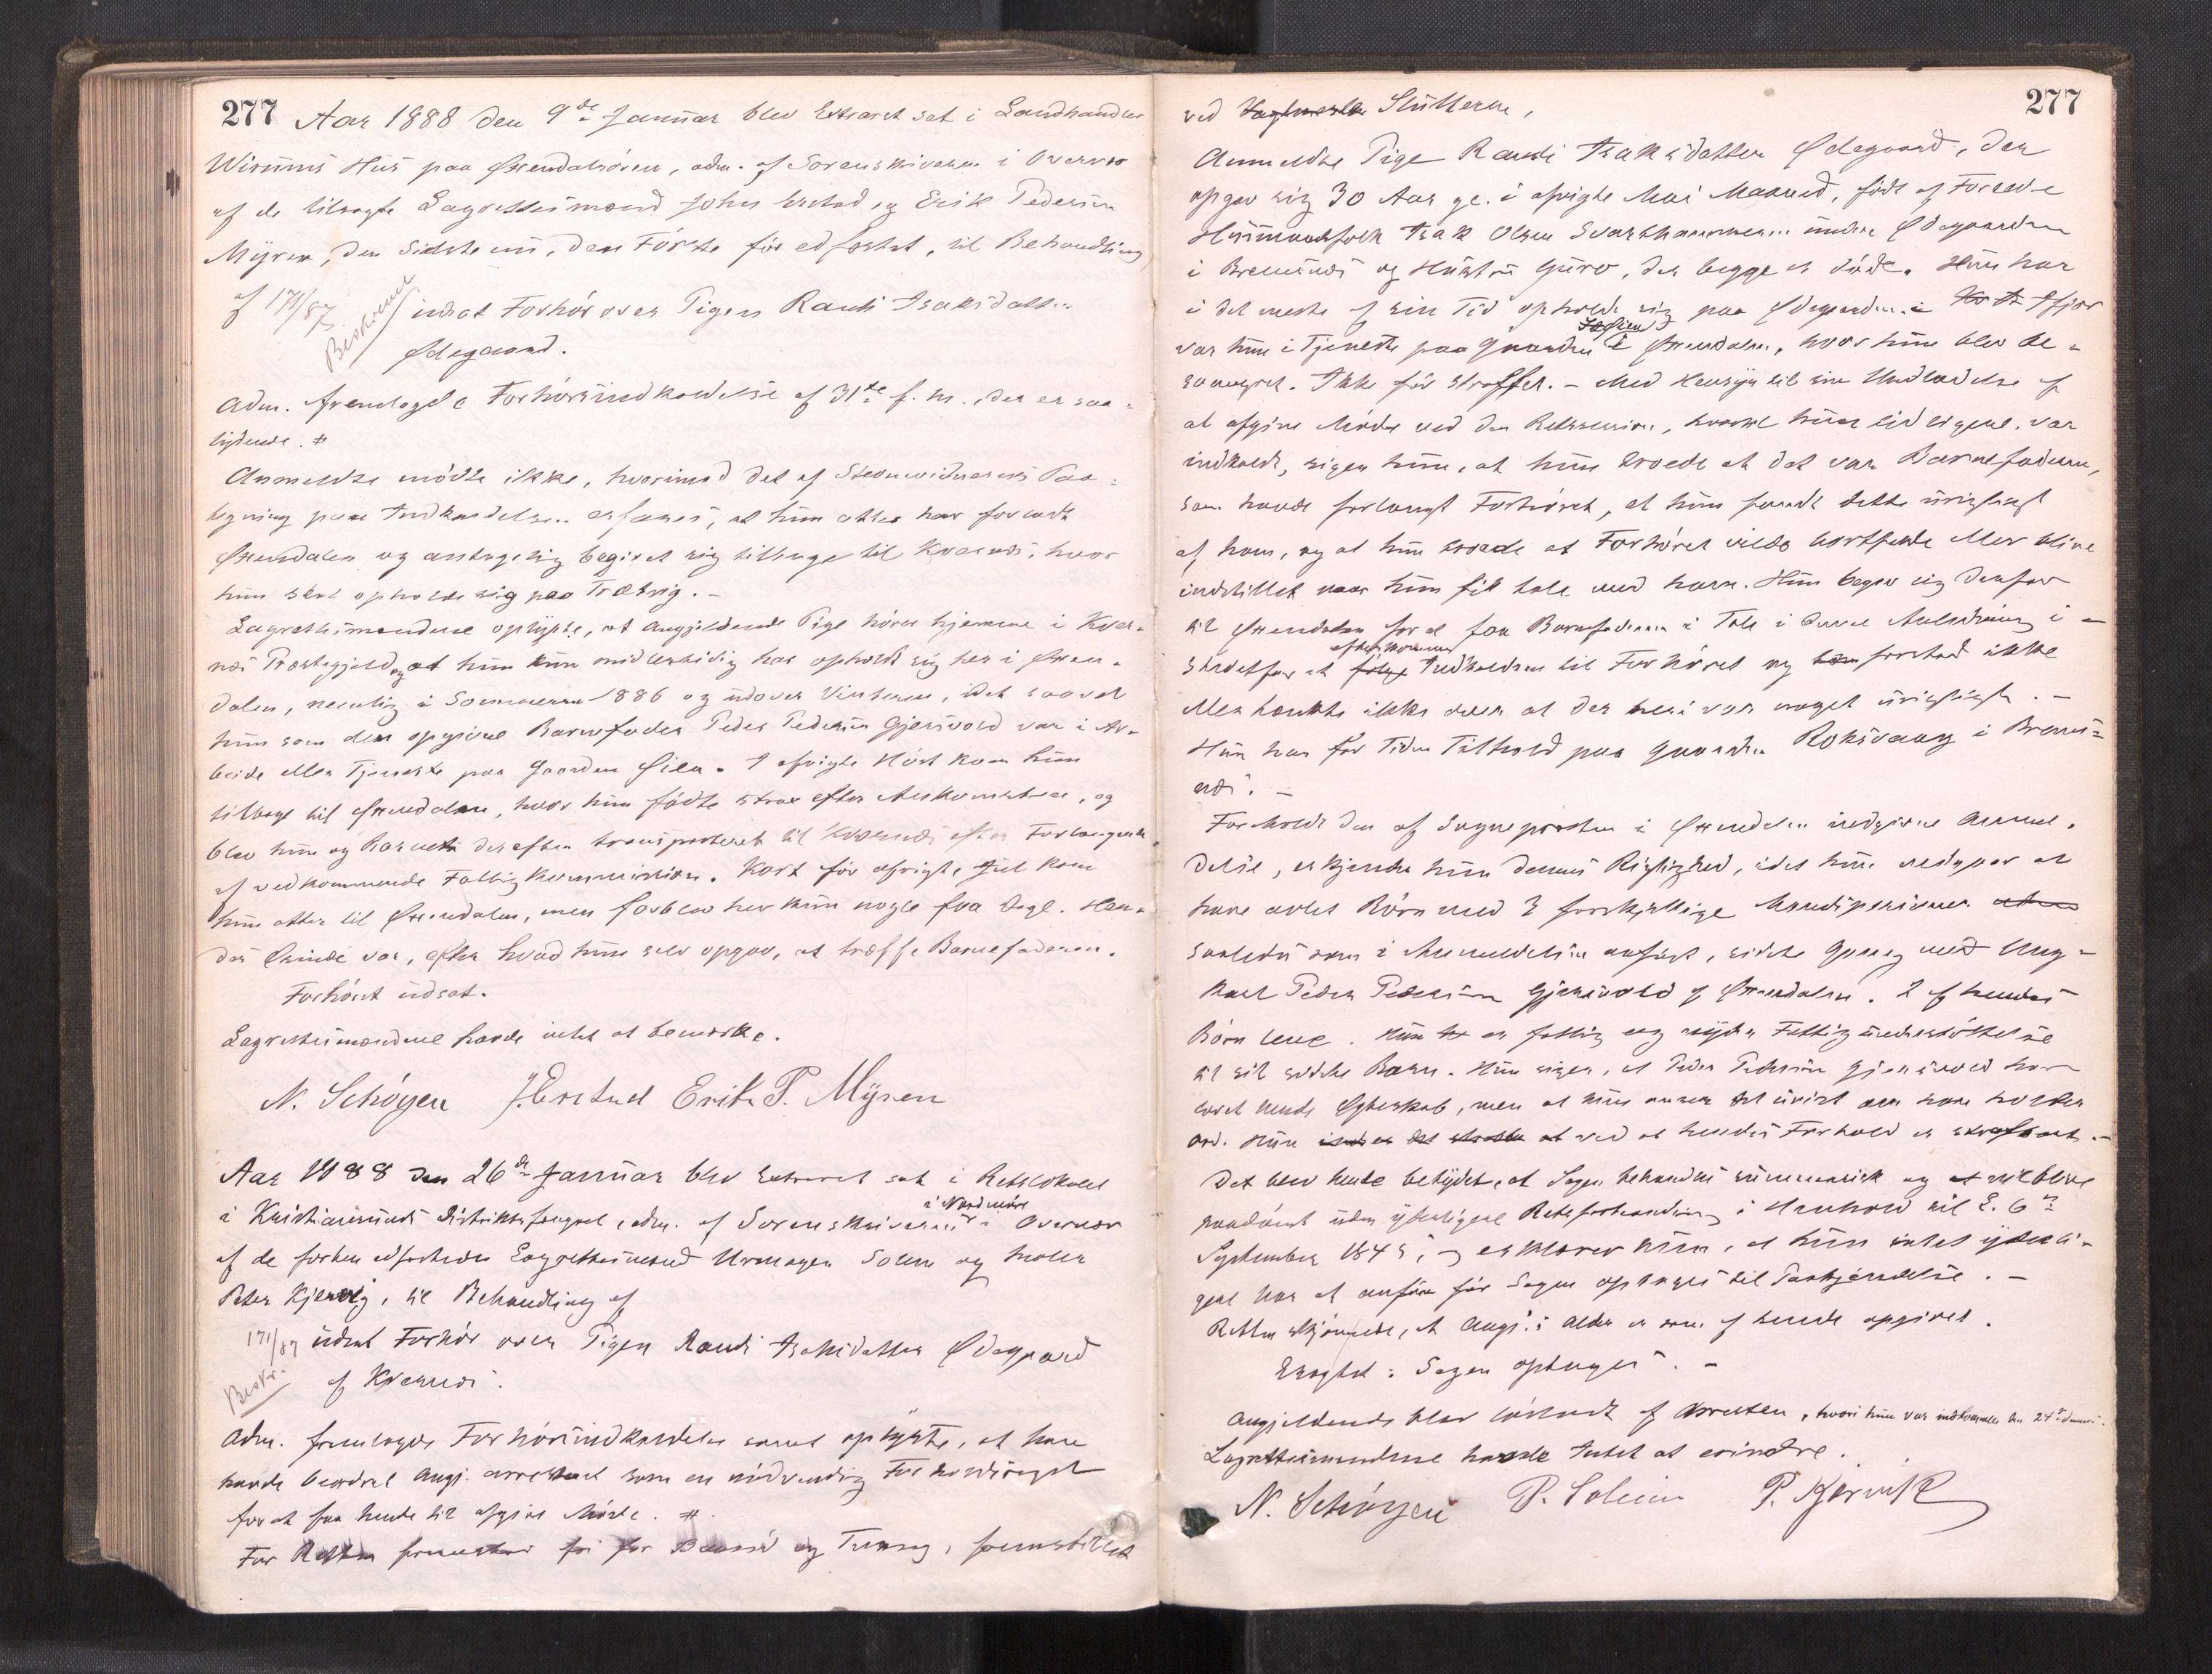 277 Aar 1888 den 9de Januar blev Extraret sat i Landhandler
Wirums Hus paa Øxendalsören, adm. af Sorenskriveren i Overvær
af de tilsagte Lagrettesmænd John Erstad og Erik Pedersen
Myren, den Sidste nu, den Förste för edfæstet, til Behandling
af 171/87 Beskrevet
udsat Forhör over Pigen Randi Isaksdatter
Ødegaard.
Adm. fremlagde Forhörsindkaldelse af 31te f. M., der er saa-
lydende. #
Anmeldte mödte ikke, hvorimod det af Stevnevidnernes Paa-
tegning paa Indkaldelsen erfares, at hun atter har forladt
Øxendalen og antagelig begivet sig tilbage til Kværnæs, hvor
hun skal opholde sig paa Trætvig. -
Lagrettesmændene oplyste, at angjeldende Pige hörer hjemme i Kvær-
næs Præstegjeld, og at hun kun midlertidig har opholdt sig her i Øxen-
dalen, nemlig i Sommeren 1886 og udover Vinteren, idet saavel
hun som den opgivne Barnefader Peder Pedersen Gjersvold var i Ar-
beide eller Tjeneste paa Gaarden Øien. I afvigte Höst kom hun
tilbage til Øxendalen, hvor hun födte strax efter Ankomsten, og
blev hun og Barnet derefter transporteret til Kværnæs efter Forlangende
af vedkommende Fattigkommission. Kort för afvigte Jul kom
hun atter til Øxendalen, men forblev her kun nogle faa Dage. Hen-
des Ærinde var, efter hvad hun selv opgav, at træffe Barnefaderen.
Forhöret udsat.
Lagrettesmændene havde intet at bemærke.
N. Schöyen J. Erstad Erik P. Myren
Aar 1888 den 26de Januar blev Extraret sat i Retslokalet
i Kristianssunds Distriktsfængsel, adm. af Sorenskriveren i Nordmöre i Overvær
af de forhen edfæstede Lagrettesmænd Urmager Solem og Maler
Peter Kjervig, til Behandling af
171/87 udsat Forhör over Pigen Randi Isaksdatter Ødegaard
Beskr. af Kværnæs.
Adm. fremlagde Forhörsindkaldelse samt oplyste, at have
havde beordret Angj. arresteret som en nödvendig Forholdsregel
for at faa hende til at give Möde. #.
For Retten fremstod fri for Baand og Tvang, fremstillet
277
ved Slutteren,
Anmeldte Pige Randi Isaksdatter Ødegaard, der
opgav sig 30 Aar gl. i afvigte Mai Maaned, född af Forældre
Husmandsfolk Isak Olsen Svarthammeren under Ødegaarden
i Bremsnæs og Hustru Guro, der begge er döde. Hun har
i det meste af sin Tid opholdt sig paa Ødegaarden. Ifjor
var hun i Tjeneste paa Gaarden Øien i Øxendalen, hvor hun blev be-
svangret. Ikke för straffet. - Med Hensyn til sin Undladelse af
at afgive Möde ved den Retssession, hvortil hun tidligere var
indkaldt, siger hun, at hun troede at det var Barnefaderen,
som havde forlangt Forhöret, at hun fandt dette urigtigt
af ham, og at hun troede at Forhöret vilde bortfalde eller blive
indstillet naar hun fik tale med ham. Hun begav sig derfor
til Øxendalen for at faa Barnefaderen i Tale i denne Anledning i-
stedetfor at efterkomme Indkaldelsen til Forhöret og forstod ikke
eller tænkte ikke over at der heri var noget urigtigt. -
Hun har for Tiden Tilhold paa Gaarden Roksvaag i Brems-
næs. -
Foreholdt den af Sognepresten i Øxendalen indgivne Anmel-
delse, erkjendte hun dennes Rigtighed, idet hun vedgaar at
have avlet Börn med 3 forskjellige Mandspersoner
saaledes som i Anmeldelsen anfört, sidste Gang med Ung-
karl Peder Pedersen Gjersvold af Øxendalen. 2 af hendes
Börn leve. Hun er fattig og nyder Fattigunderstöttelse
til sit sidste Barn. Hun siger, at Peder Pedersen Gjersvold har
lovet hende Ægteskab, men at hun anser det uvist om han holder
Ord. Hun ved at hendes Forhold er strafbart. -
Det blev hende betydet, at Sagen behandles summarisk og vil blive
paadömt uden yderligere Retsforhandling i Henhold til L. 6te
September 1845, og erklærer hun, at hun intet yderli-
gere har at anföre för Sagen optages til Paakjendelse. -
Retten skjönnede, at Angj.s Alder er som af hende opgivet.
Eragtet: Sagen optages. -
Angjeldende blev lösladt af Arresten, hvori hun var indkommen den 24de dennes.
Lagrettesmændene havde Intet at erindre.
N. Schöyen P. Solem P. Kjervik